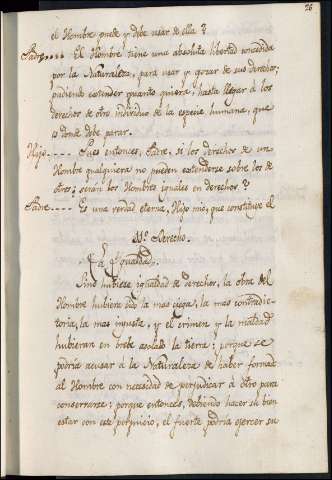 26
el Hombre puede y debe usar de ella?
Padre.... El Hombre tiene una absoluta libertad concedida
por la Naturaleza, para usar y gozar de sus derechos;
pudiendo estender quanto quiera, hasta llegar á los
derechos de otro individuo de la especie humana, que
es donde debe parar.
Hijo.... Pues entonces, Padre, si los derechos de un
Hombre qualquiera no pueden estenderse sobre los de
otros, serán los Hombres iguales en derechos?
Padre.... Es una verdad eterna, Hijo mio, que constituye el
11º Derecho.
La Igualdad.
Sino hubiese igualdad de derechos, la obra del
Hombre hubiera sido la mas ciega, la mas contradic-
toria, la mas injusta, y el crimen y la maldad
hubieran en brebe asolado la tierra; porque se
podria acusar á la Naturaleza de haber formado
al Hombre con necesidad de perjudicar á otro para
conserbarse; porque entonces, debiendo hacer su bien
estar con este perjuicio, el fuerte podria ejercer su